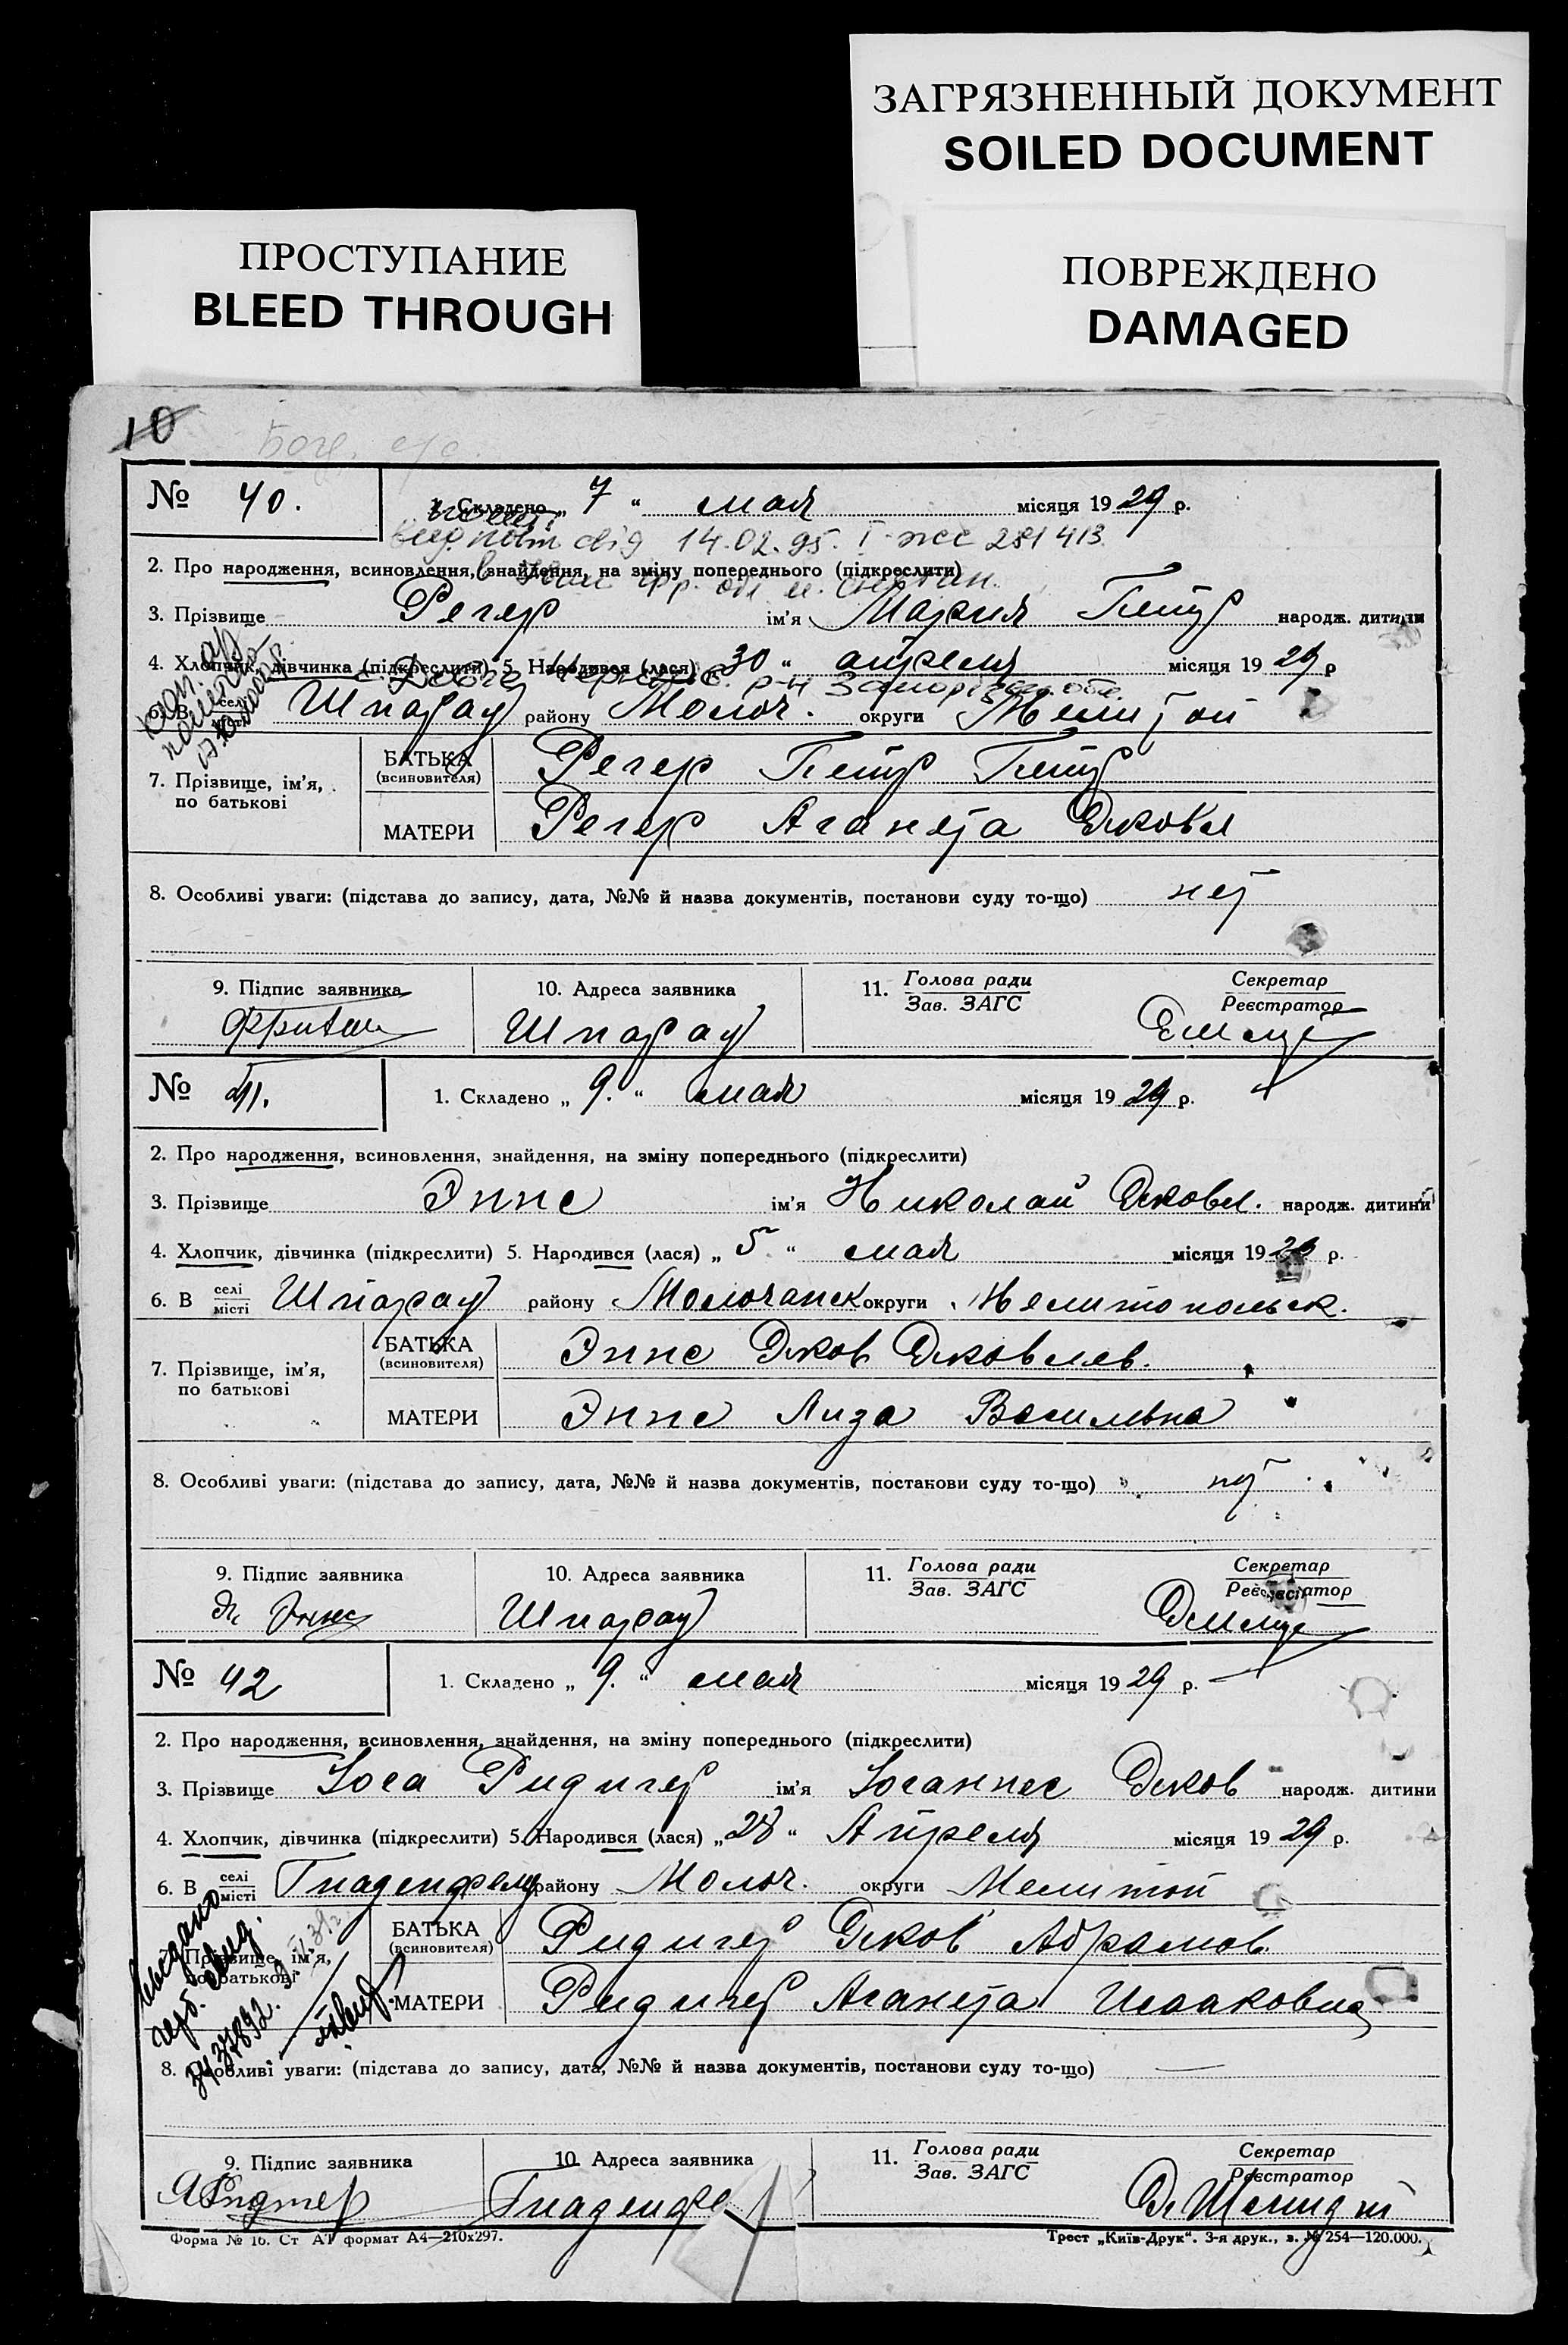 ЗАГРЯЗНЕННЫЙ ДОКУМЕНТ
SOILED DOCUMENT
ПРОСТУПАНИЕ
BLEED THROUGH
ПОВРЕЖДЕНО
DAMAGED
10
№ 40.
1. Складено „ 7 “ мая місяця 1929 р.
від 14.02.95. І-жс 281413
2. Про народження, всиновлення, знайдення, на зміну попереднього (підкреслити)
3. Прізвище Регер ім’я Мария Петр народж. дитини
4. Хлопчик, дівчинка (підкреслити) 5. Народився (лася) „ 30 “ апреля місяця 1929 р
6. В селі місті Шпарау району Молоч. округи Мелитоп
7. Прізвище, ім’я, по батькові
БАТЬКА (всиновителя) Регер Петр Петр
МАТЕРИ Регер Аганета Яковл
8. Особливі уваги: (підстава до запису, дата, №№ й назва документів, постанови суду то-що) нет
9. Підпис заявника
10. Адреса заявника Шпарау
11. Голова ради Зав. ЗАГС
Секретар Реєстратор
№ 41.
1. Складено „ 9. “ мая місяця 1929 р.
2. Про народження, всиновлення, знайдення, на зміну попереднього (підкреслити)
3. Прізвище Эннс ім’я Николай Яковл. народж. дитини
4. Хлопчик, дівчинка (підкреслити) 5. Народився (лася) „ 5 “ мая місяця 19 р.
6. В селі місті Шпарау району Молочанск округи Мелитопольск.
7. Прізвище, ім’я, по батькові
БАТЬКА (всиновителя) Эннс Яков Яковлев.
МАТЕРИ Эннс Лиза Васильвна
8. Особливі уваги: (підстава до запису, дата, №№ й назва документів, постанови суду то-що) нет
9. Підпис заявника Эннс
10. Адреса заявника Шпарау
11. Голова ради Зав. ЗАГС
Секретар Реєстратор
№ 42
1. Складено „ 9. “ мая місяця 1929 р.
2. Про народження, всиновлення, знайдення, на зміну попереднього (підкреслити)
3. Прізвище Ридигер ім’я Іоганнес Яков народж. дитини
4. Хлопчик, дівчинка (підкреслити) 5. Народився (лася) „ 28 “ Апреля місяця 1929 р.
6. В селі місті Гнаденфельд району Молоч. округи Мелитоп
7. Прізвище, ім’я, по батькові
БАТЬКА (всиновителя) Ридигер Яков Абрамов
МАТЕРИ Ридигер Аганета Исааковна
8. Особливі уваги: (підстава до запису, дата, №№ й назва документів, постанови суду то-що)
9. Підпис заявника
10. Адреса заявника Гнаденфе
11. Голова ради Зав. ЗАГС
Секретар Реєстратор
Форма № 1б. Ст А1 формат А4—210х297.
Трест „Київ-Друк“. 3-я друк., з. № 254—120.000.